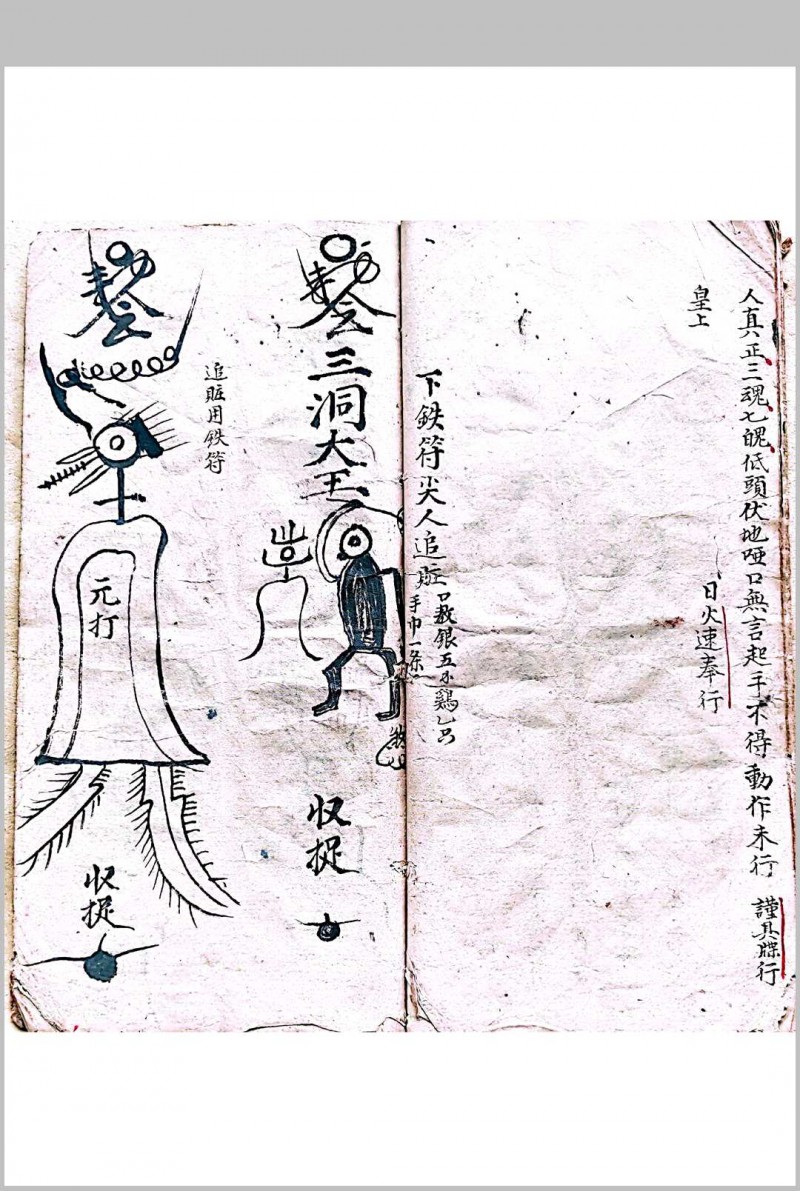 人真正三魂七魄低頭伏地哑口無言起手不得動作未行 謹具牒行
皇上
日火速奉行
下鉄符尖人追賍
手巾一条
三洞大王
收捉
追賍用鉄符
元打
收捉